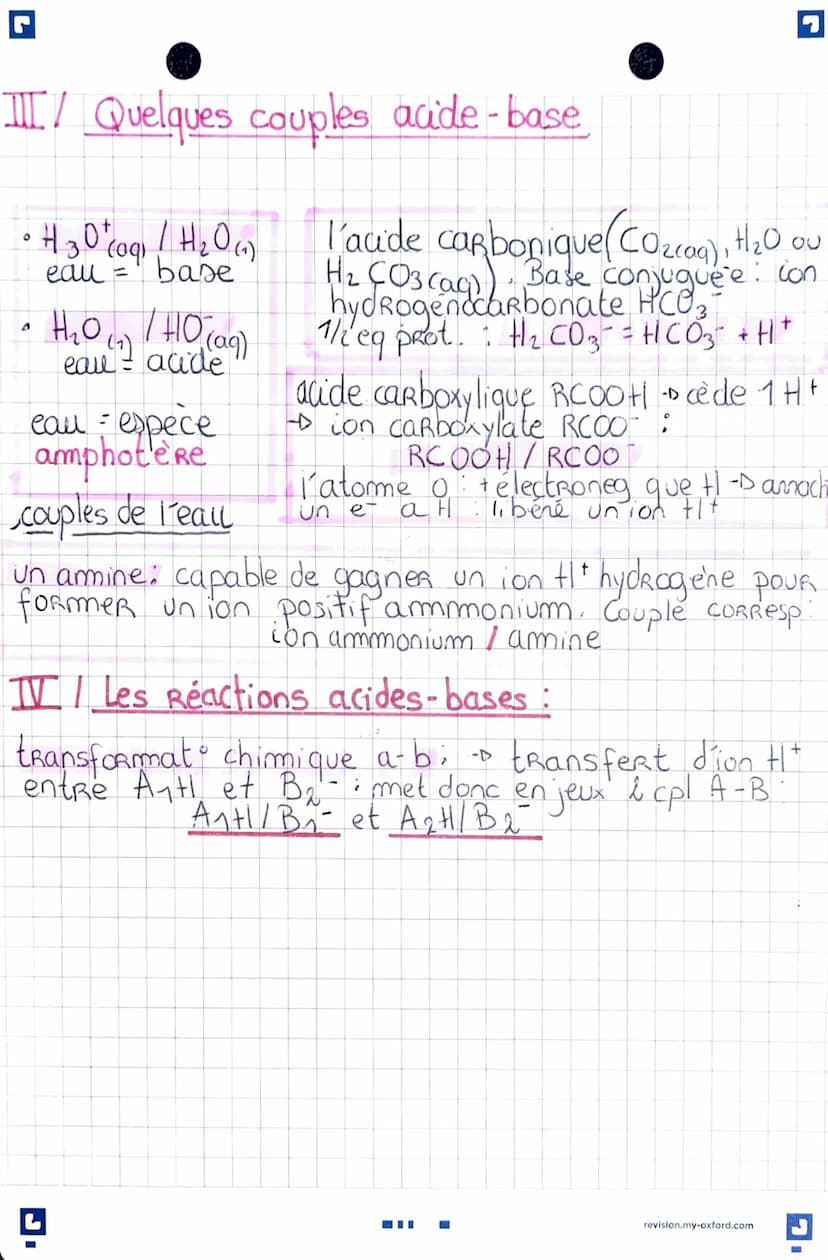 III / Quelques couples acide-base
• H₃O⁺(aq) / H₂O(l)
eau = base
• H₂O(l) / HO⁻(aq)
eau = acide
eau = espèce
amphotère
couples de l'eau
l'acide carbonique (CO₂(aq), H₂O ou
H₂CO₃(aq)). Base conjuguée : ion
hydrogénocarbonate HCO₃⁻
1/2 eq prot. : H₂CO₃⁻ = HCO₃⁻ + H⁺
acide carboxylique RCOOH → cède 1 H⁺
→ ion carboxylate RCOO⁻ :
RCOOH / RCOO⁻
l'atome O : + électroneg que H → arrach
un e⁻ a H : libéré un ion H⁺
un amine : capable de gagner un ion H⁺ hydrogène pour
former un ion positif ammmonium. Couple corresp :
ion ammmonium / amine
IV / Les Réactions acides-bases :
transformat° chimique a-b : → transfert d'ion H⁺
entre A₁H et B₂⁻ : met donc en jeux 2 cpl A-B :
A₁H/B₁⁻ et A₂H/B₂⁻
revision.my-oxford.com